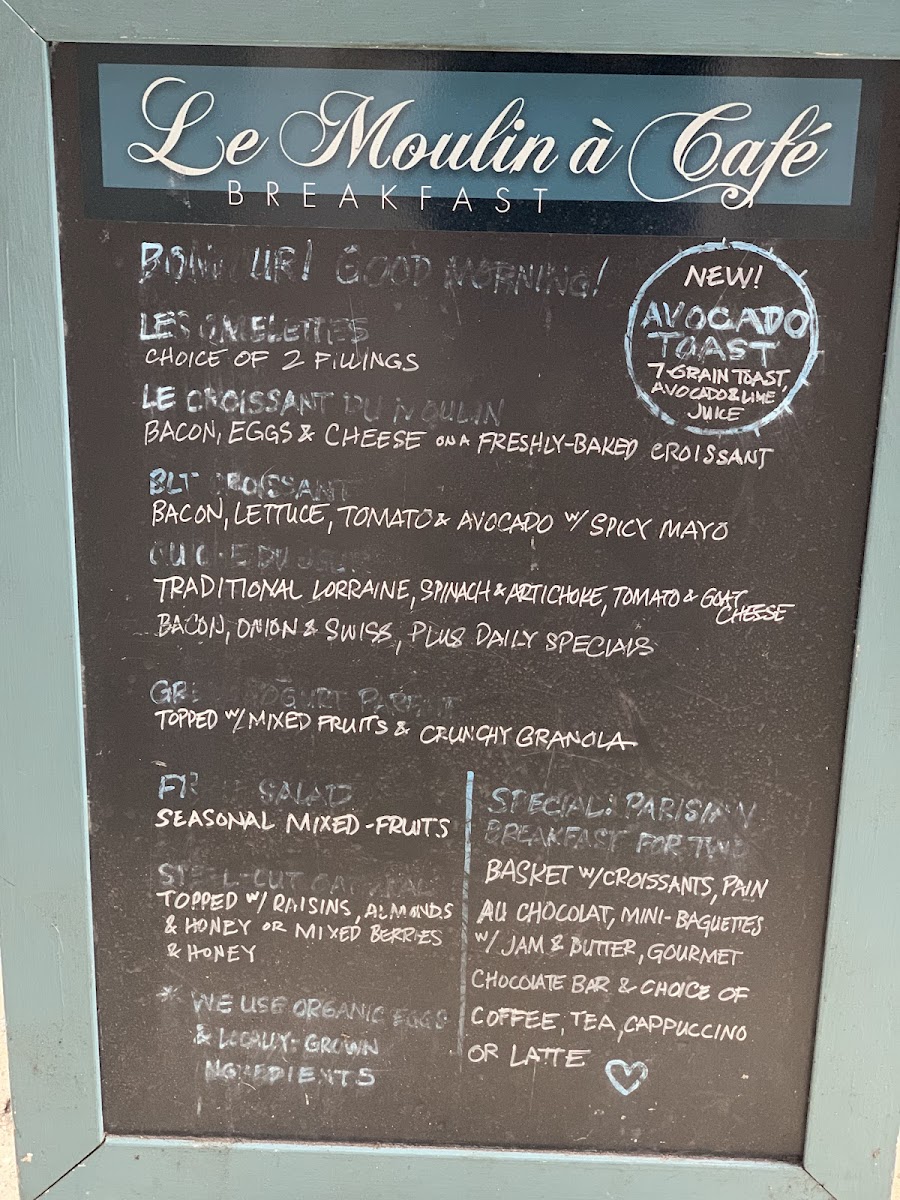 Le Moulin à Café
BREAKFAST
BONJOUR! GOOD MORNING!
NEW!
AVOCADO
TOAST
7-GRAIN TOAST,
AVOCADO & LIME
JUICE
LES OMELETTES
CHOICE OF 2 FILLINGS
LE CROISSANT DU MOULIN
BACON, EGGS & CHEESE ON A FRESHLY-BAKED CROISSANT
BLT CROISSANT
BACON, LETTUCE, TOMATO & AVOCADO W/ SPICY MAYO
QUICHE DU JOUR
TRADITIONAL LORRAINE, SPINACH & ARTICHOKE, TOMATO & GOAT
CHEESE
BACON, ONION & SWISS, PLUS DAILY SPECIALS
YOGURT PARFAIT
TOPPED W/ MIXED FRUITS & CRUNCHY GRANOLA
FRUIT SALAD
SEASONAL MIXED-FRUITS
STEEL-CUT OATMEAL
TOPPED W/ RAISINS, ALMONDS
& HONEY OR MIXED BERRIES
& HONEY
* WE USE ORGANIC EGGS
& LOCALLY-GROWN
INGREDIENTS
SPECIAL: PARISIAN
BREAKFAST FOR TWO
BASKET W/ CROISSANTS, PAIN
AU CHOCOLAT, MINI-BAGUETTES
W/ JAM & BUTTER, GOURMET
CHOCOLATE BAR & CHOICE OF
COFFEE, TEA, CAPPUCCINO
OR LATTE